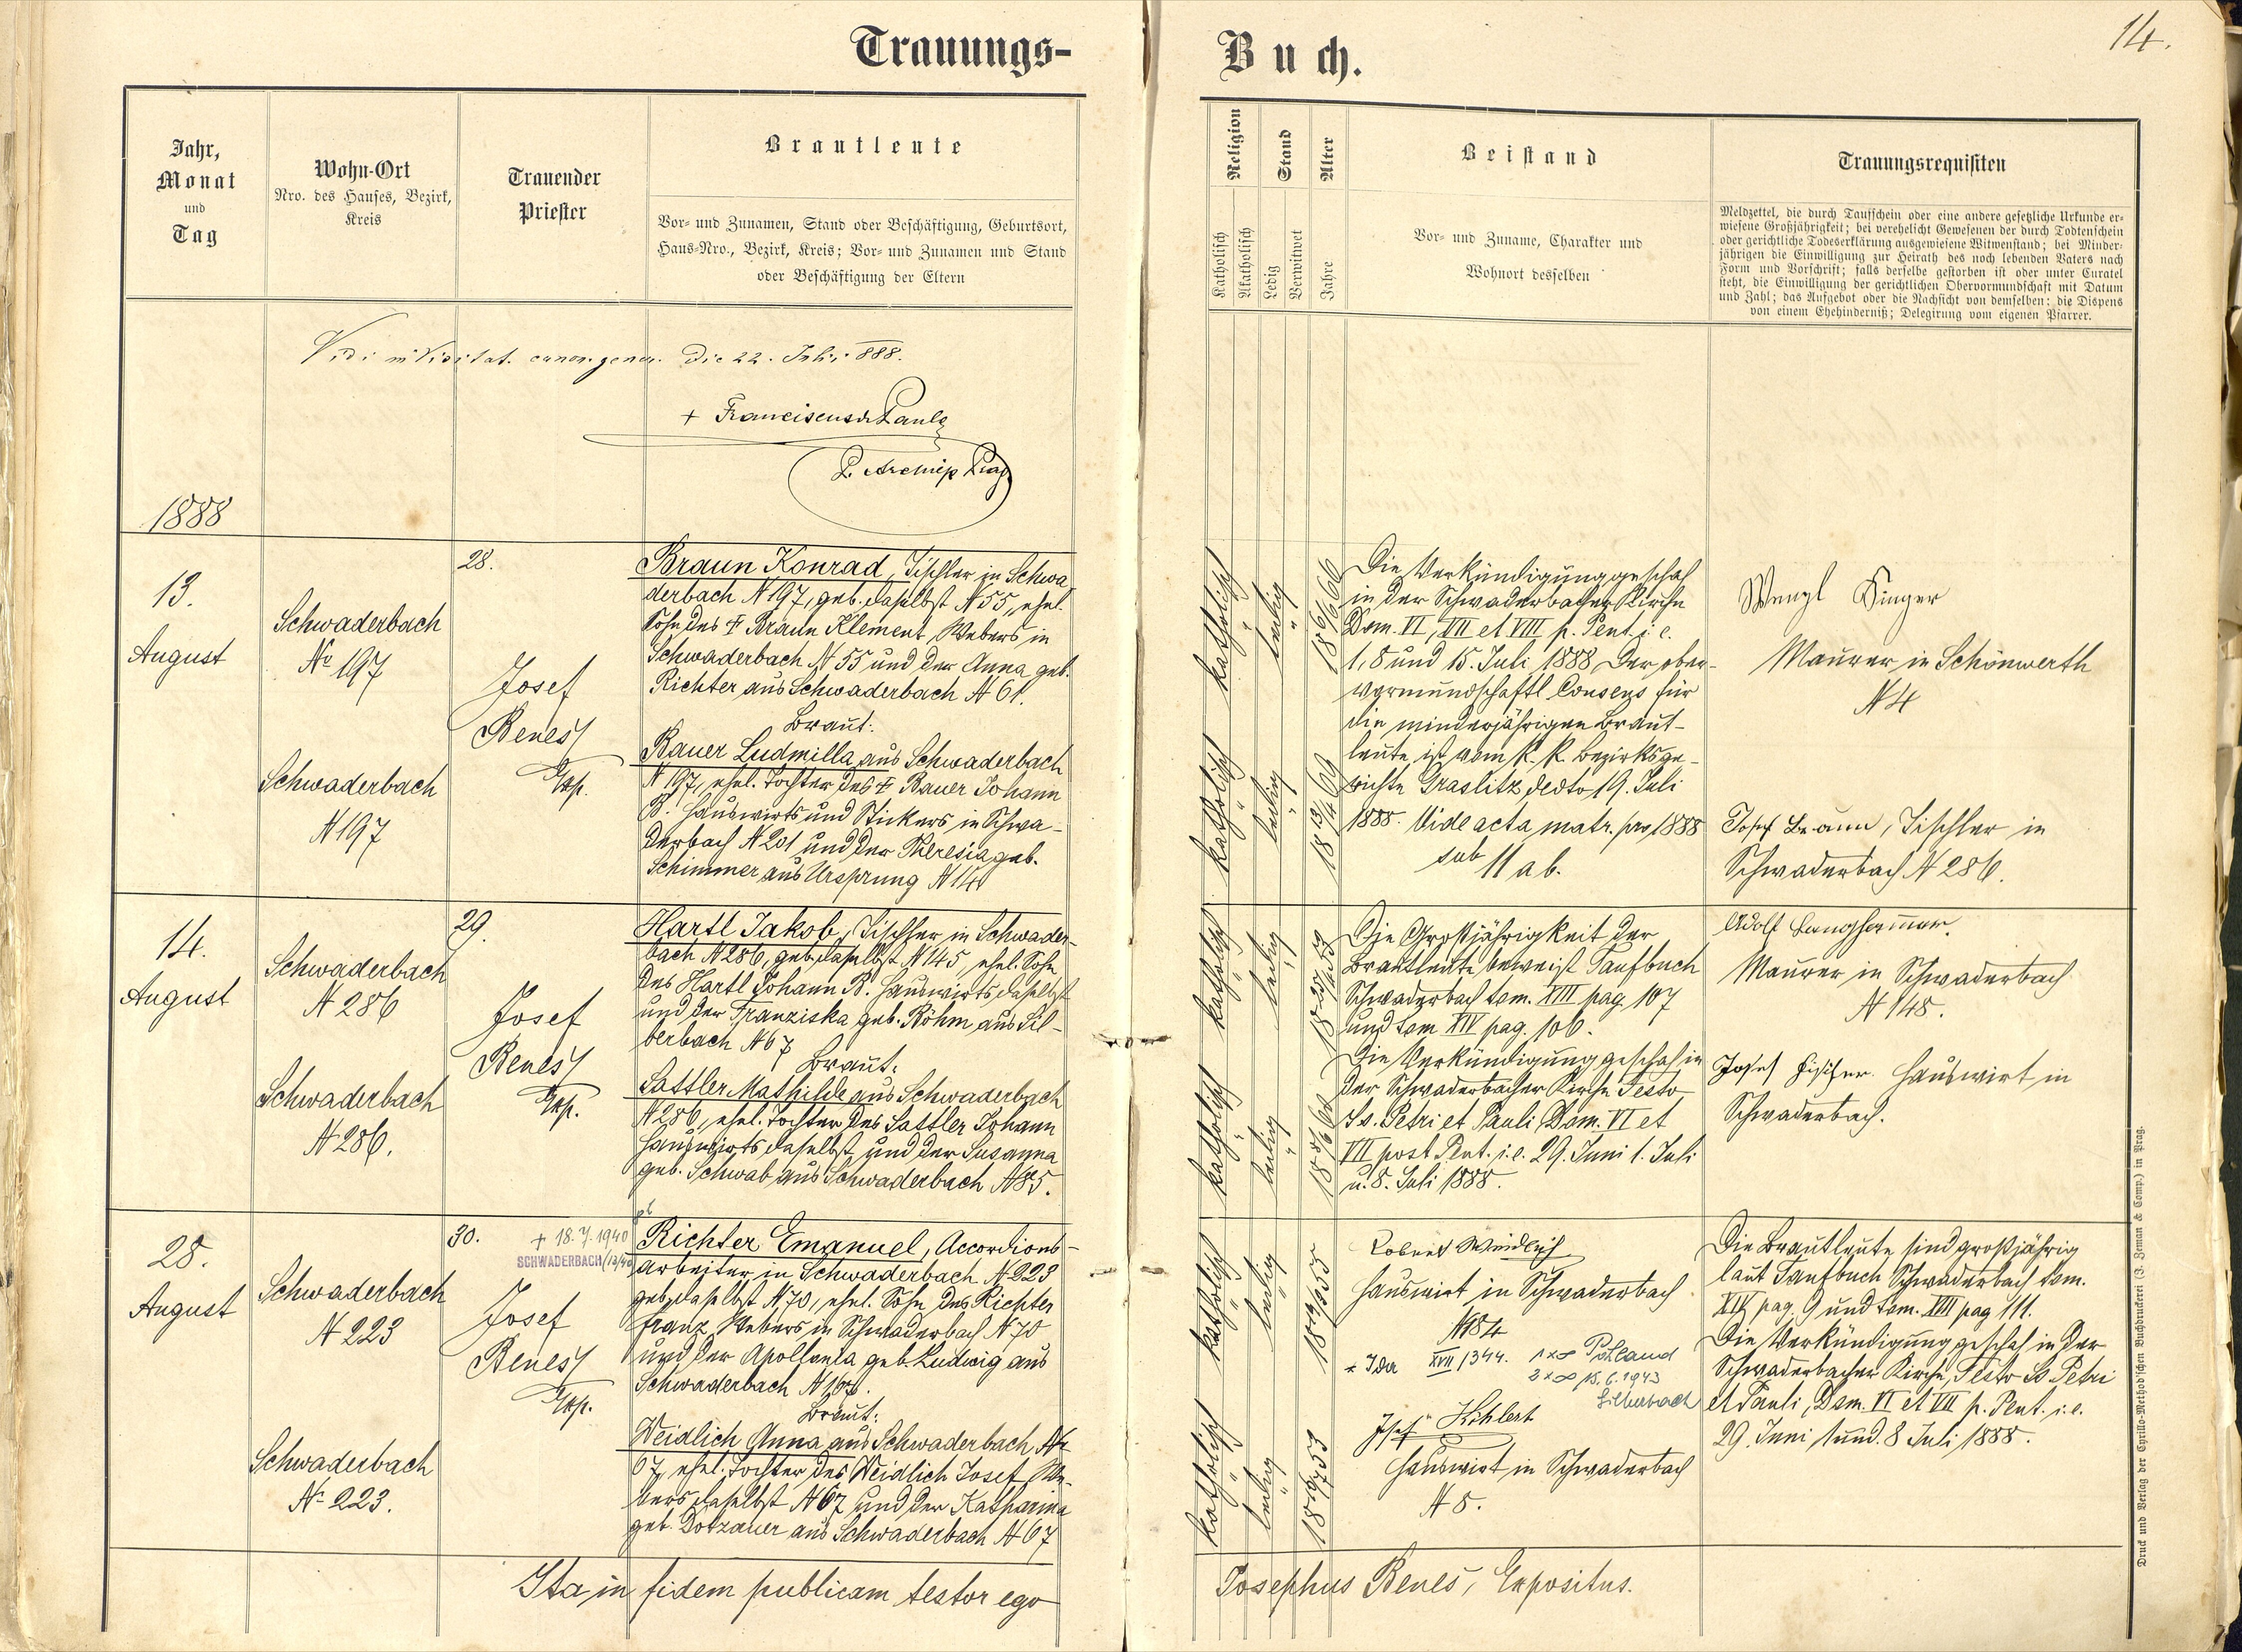 Trauungs-
Buch.
14.
Jahr,
Monat
und
Tag
Wohn-Ort
Nro. des Hauses, Bezirk,
Kreis
Trauender
Priester
Brautleute
Vor- und Zunamen, Stand oder Beschäftigung, Geburtsort,
Haus-Nro., Bezirk, Kreis; Vor- und Zunamen und Stand
oder Beschäftigung der Eltern
Religion
Katholisch
Akatholisch
Stand
Ledig
Verwitwet
Alter
Jahre
Beistand
Vor- und Zuname, Charakter und
Wohnort desselben
Trauungsrequisiten
Meldzettel, die durch Taufschein oder eine andere gesetzliche Urkunde er-
wiesene Großjährigkeit; bei verehelicht Gewesenen der durch Todtenschein
oder gerichtliche Todeserklärung ausgewiesene Witwenstand; bei Minder-
jährigen die Einwilligung zur Heirath des noch lebenden Vaters nach
Form und Vorschrift; falls derselbe gestorben ist oder unter Curatel
steht, die Einwilligung der gerichtlichen Obervormundschaft mit Datum
und Zahl; das Aufgebot oder die Nachsicht von demselben: die Dispens
von einem Ehehinderniß; Delegirung vom eigenen Pfarrer.
Vidi in Visitat. canon. gener. Die 22. Julii 888.
+ Franciscus de Paula
P. Archiep Prag
1888
13.
August
Schwaderbach
No 197
Schwaderbach
N 197
28.
Josef
Beneš
Exp.
Braun Konrad, Tischler in Schwa
derbach N 197, geb. daselbst N 55, ehel.
Sohn des † Braun Klement, Webers in
Schwaderbach N 55 und der Anna geb.
Richter aus Schwaderbach N 61.
Braut:
Bauer Ludmilla aus Schwaderbach
N 197, ehel. Tochter des † Bauer Johann
B. Hauswirts und Stickers in Schwa-
derbach N 201 und der Theresia geb.
Schimmer aus Ursprung N 14
katholisch
ledig
katholisch
ledig
18 13/4 69
Die Verkündigung geschah
in der Schwaderbacher Kirche
Dom. VI, VII et VIII p. Pent. i. e.
1, 8 und 15. Juli 1888 Der ober-
vormundschaftl Consens für
die minderjährigen Braut-
leute ist vom k. k. Bezirksge-
richte Graslitz dedto 19. Juli
1888. Vide acta matr. pro 1888
sub 11 ab.
Wenzl Singer
Maurer in Schönwerth
N 4
Josef Braun, Tischler in
Schwaderbach N 286.
14.
August
Schwaderbach
N 286
Schwaderbach
N 286.
29.
Josef
Beneš
Exp.
Hartl Jakob, Tischler in Schwader-
bach N 286, geb. daselbst N 145, ehel. Sohn
des Hartl Johann B. Hauswirts daselbst
und der Franziska geb. Böhm aus Sil-
berbach N 67
Braut:
Sattler Mathilde aus Schwaderbach
N 286, ehel. Tochter des Sattler Johann
Hauswirts daselbst und der Susanna
geb. Schwab aus Schwaderbach N 85.
katholisch
ledig
katholisch
ledig
Die Großjährigkeit der
Brautleute beweist Taufbuch
Schwaderbach tom. XIII pag. 107
und tom XIV pag. 106.
Die Verkündigung geschah in
der Schwaderbacher Kirche Festo
Ss. Petri et Pauli, Dom. VI et
VII post Pent. i. e. 29. Juni 1. Juli
u. 8. Juli 1888.
Adolf Langhammer.
Maurer in Schwaderbach
N 148.
Josef Fischer. Hauswirt in
Schwaderbach.
28.
August
Schwaderbach
N 223
Schwaderbach
No 223.
30.
+ 18.7.1940
SCHWADERBACH
Josef
Beneš
Exp.
Richter Emanuel, Accordions-
arbeiter in Schwaderbach N 223
geb. daselbst N 70, ehel. Sohn des Richter
Franz, Webers in Schwaderbach N 70
und der Apollonia geb. Ludwig aus
Schwaderbach
Braut:
Weidlich Anna aus Schwaderbach No
67, ehel. Tochter des Weidlich Josef, We-
bers daselbst N 67 und der Katharina
geb. Dotzauer aus Schwaderbach N 67
katholisch
ledig
katholisch
ledig
Weidlich
Hauswirt in Schwaderbach
N 84
* Ida XVII/344. 1 x ∞ Pöhland
2 x ∞ 15.6.1943
Silberbach
Josef Köhlert
Hauswirt in Schwaderbach
N 5.
Die Brautleute sind großjährig
laut Taufbuch Schwaderbach tom.
XIV pag. 9 und tom. XIII pag 111.
Die Verkündigung geschah in der
Schwaderbacher Kirche, Festo Ss Petri
et Pauli, Dom. VI et VII p. Pent. i. e.
29. Juni 1 und. 8 Juli 1888.
Ita in fidem publicam testor ego
Josephus Beneš, Expositus.
Druck und Verlag der Cyrillo-Method'schen Buchdruckerei (J. Zeman & Comp.) in Prag.